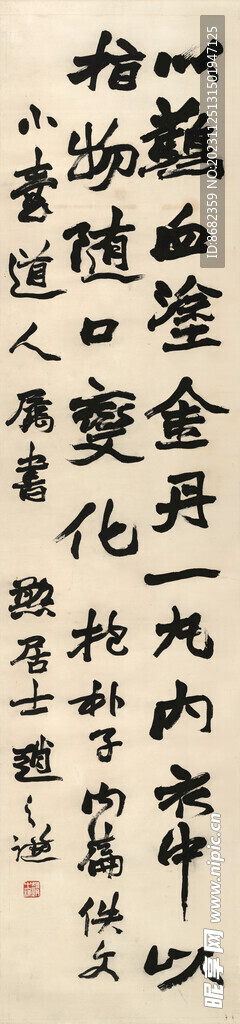 以鷄血塗金丹一丸内衣中以
指物随口變化 抱朴子内篇佚文
小道人属書 憨居士趙之謙
ID:8682359 NO:20231125131501947125
昵享网 www.nipic.cn